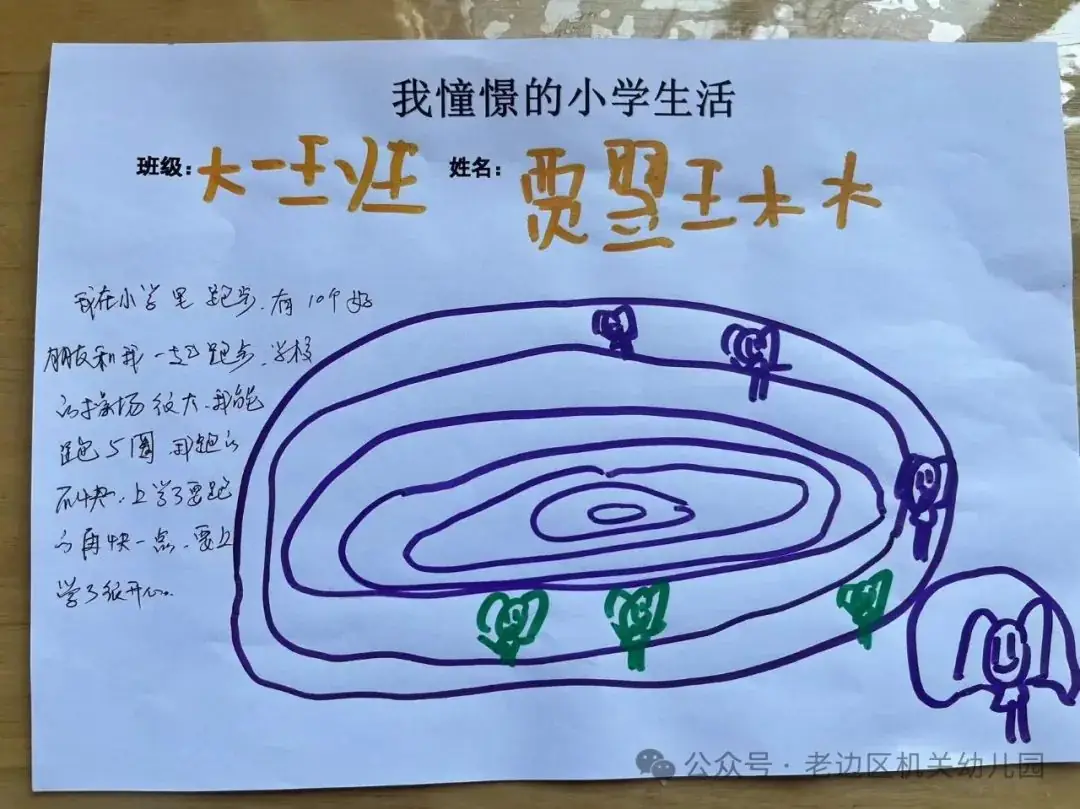 我憧憬的小学生活
班级：大一班 姓名：贾翌琳
我在小学里跑步，有10个好
朋友和我一起跑步，学校
的操场很大，我能
跑5圈，我跑的
不快，上学了要跑
的再快一点，要上
学了很开心。
公众号·老边区机关幼儿园